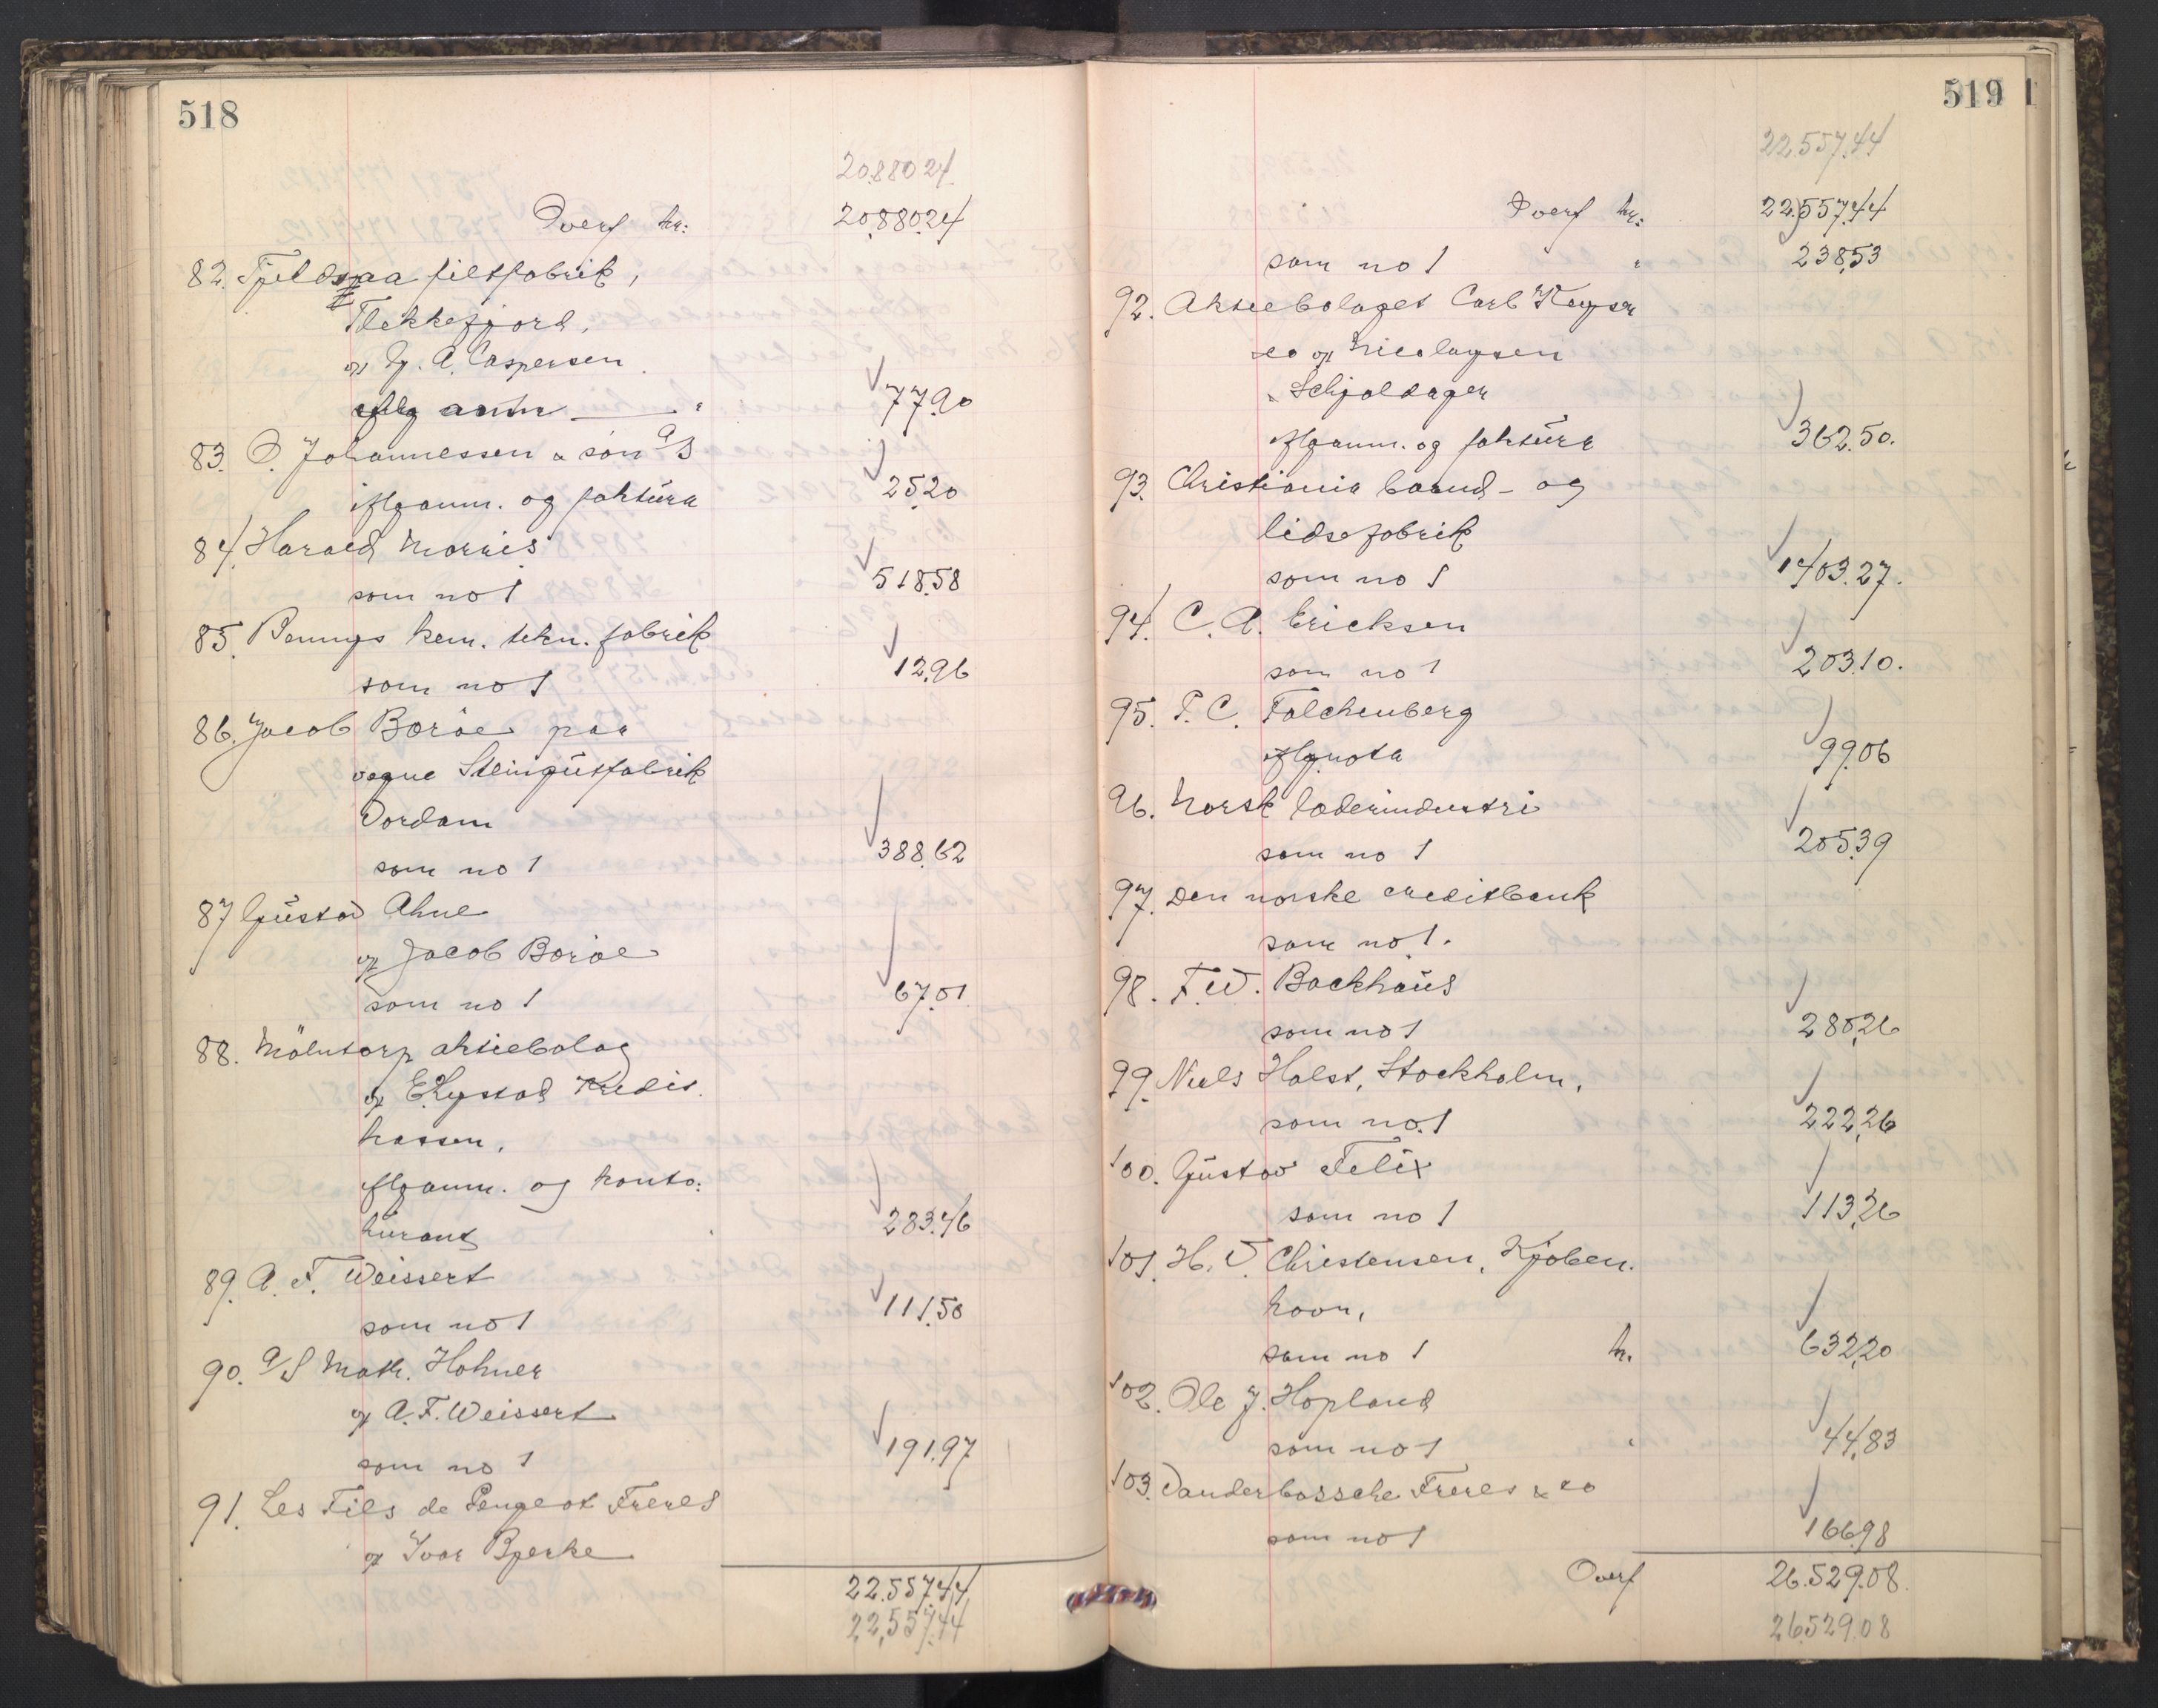 518
20880 24
Overf kr:
20.880.24
82. Fjeldsaa filtfabrik,
Flekkefjord,
v/ Hj. A. Caspersen
iflg anm " 77.90
83. O. Johannessen & søn A/S
iflg anm. og faktura 25.20
84. Harald Morris
som no 1 518.58
85. Pennys kem. tekn. fabrik
som no 1 12.96
86. Jacob Boröe paa
vegne Steingutfabrik
Vordam
som no 1 388.62
87 Gustav Ahne
v/ Jacob Boröe
som no 1 67.01
88. Mölntorp aktiebolag
v/ E. Lystad Kredit.
kassen,
iflg anm. og konto:
kurant 283.46
89. A. F. Weissert
som no 1 111.50
90. A/S Math. Hohner
v/ A. F. Weissert
som no 1 191.97
91. Les Fils de Peugeot Freres
v/ Ivar Bjerke
22.557.44
22.557.44
519
22.557.44
Overf kr: 22.557.44
som no 1 " 238.53
92. Aktiebolaget Carl Kayser
& co v/ Nicolaysen
& Schjoldager
iflg anm. og faktura 362.50.
93. Christiania baand- og
lidsefabrik
som no 1 1403.27.
94. C. A. Ericksen
som no 1 203.10.
95. P. C. Falchenberg
iflg nota 99.06
96. Norsk læderindustri
som no 1 205.39
97. Den norske creditbank
som no 1.
98. F. W. Backhaus
som no 1 280,26
99. Niels Holst, Stockholm,
som no. 1 222,26
100. Gustav Felix
som no 1 113,26
101. H. V. Christensen, Kjøben.
havn,
som no 1 kr. 632,20
102. Ole J. Hopland
som no 1 " 44,83
103. Vanderbossche Freres & co
som no 1 166.98
Overf 26.529.08.
26529.08